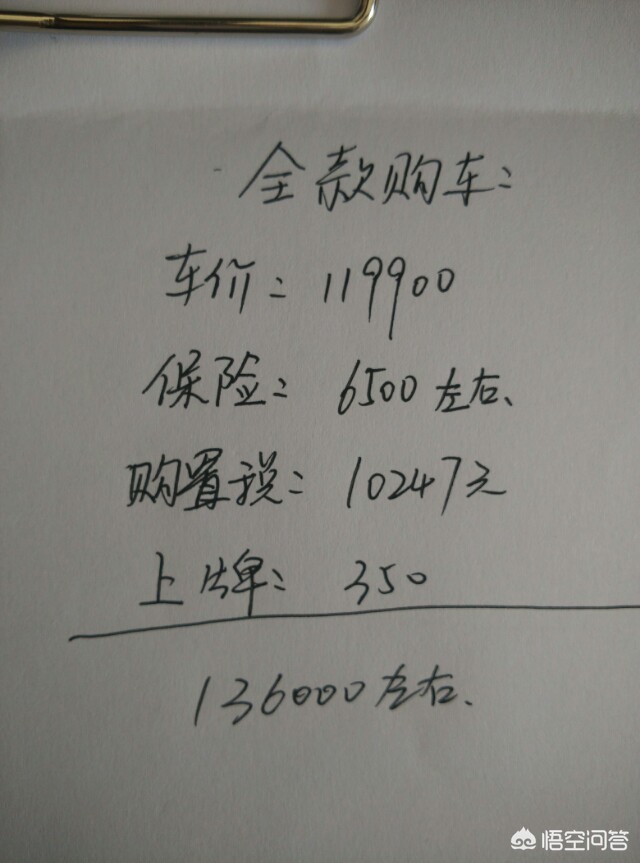 全款购车：
车价：119900
保险：6500左右、
购置税：10247元
上牌：350
136000左右、
悟空问答